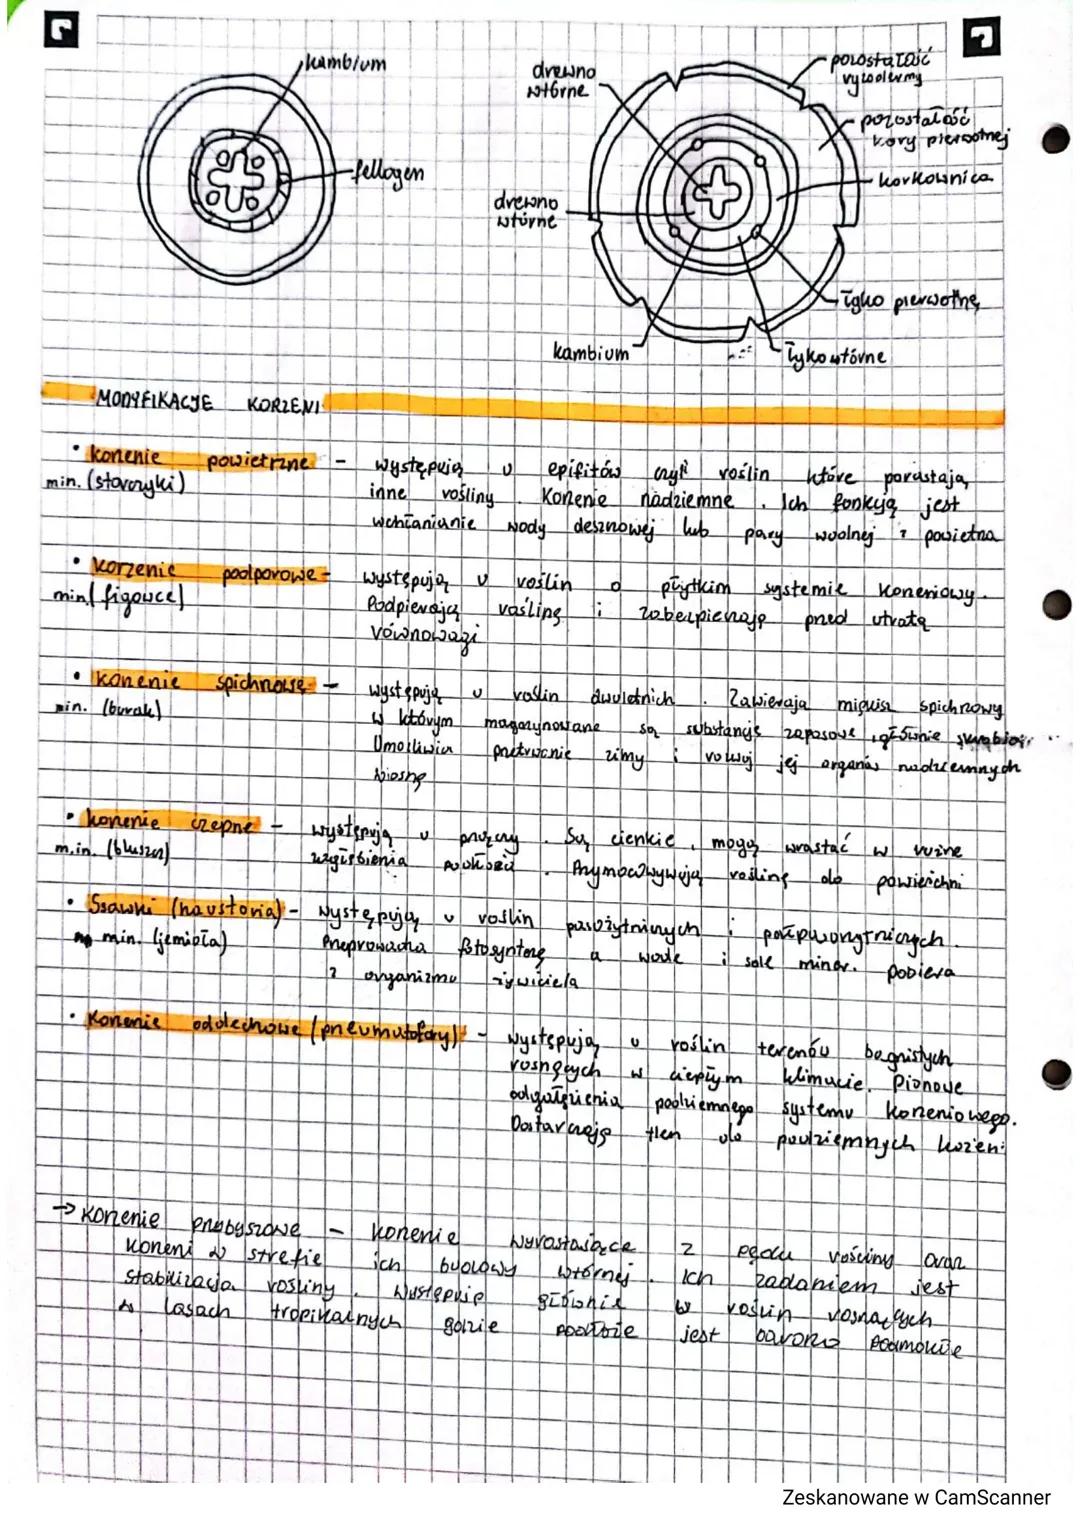 kambium
fellogen
drewno
wtórne
pozostałość
ryzodermy
pozostałość
kory pierwotnej
korkownica
drewno
wtórne
łyko pierwotne
kambium
łyko wtórne
MODYFIKACJE KORZENI
• korzenie powietrzne - występują u epifitów czyli roślin które porastają
min. (storczyki) inne rośliny. Korzenie nadziemne. Ich funkcją jest
wchłanianie wody deszczowej lub pary wodnej z powietrza
• korzenie podporowe - występują u roślin o płytkim systemie korzeniowy.
min. (figowce) Podpierają roślinę i zabezpieczają przed utratą
równowagi
• korzenie spichrzowe - występują u roślin dwuletnich. Zawierają miękisz spichrzowy
min. (burak) w którym magazynowane są substancje zapasowe, głównie skrobia.
Umożliwia przetrwanie zimy i rozwój jej organów nadziemnych
wiosną
• korzenie czepne - występują u pnączy. Są cienkie, mogą wrastać w różne
m.in. (bluszcz) wzgłębienia podłoża. Przymocowywują roślinę do powierzchni
• Ssawki (haustoria) - występują u roślin pasożytniczych i półpasożytniczych.
min. (jemioła) Przeprowadza fotosyntezę a wodę i sole miner. pobiera
z organizmu żywiciela
• Korzenie oddechowe (pneumatofory) - występują u roślin terenów bagnistych
rosnących w ciepłym klimacie. Pionowe
odgałęzienia podziemnego systemu korzeniowego.
Dostarczają tlen do podziemnych korzeni
→ Korzenie przybyszowe - korzenie wyrastające z pędu rośliny oraz
korzeni w strefie ich budowy wtórnej. Ich zadaniem jest
stabilizacja rośliny. Występuje głównie w roślin rosnących
w lasach tropikalnych gdzie podłoże jest bardzo podmokłe
Zeskanowane w CamScanner